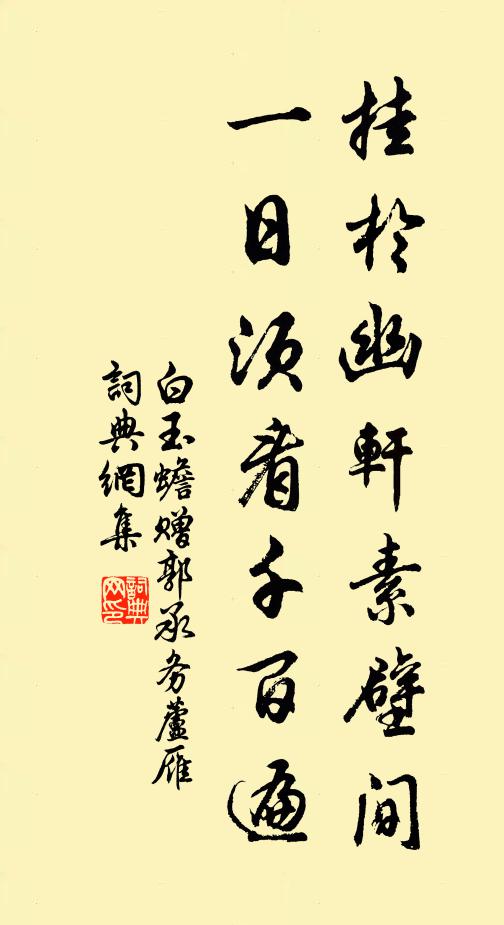 挂於幽軒素壁间
一日须看千百遍
白玉蟾赠郭承务蘆雁
詞典網集
詞典網印